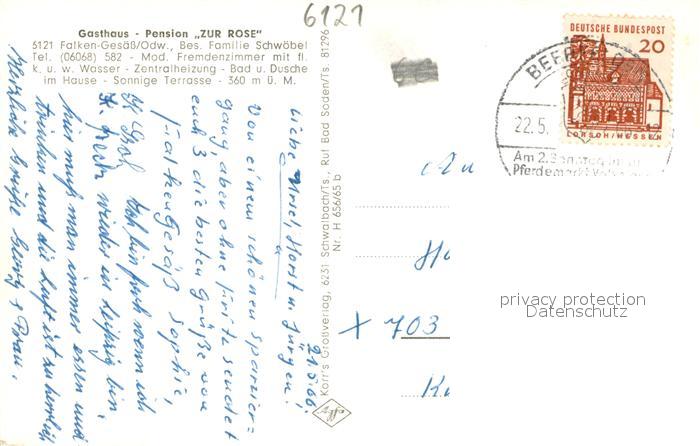 6121
Gasthaus - Pension „ZUR ROSE"
6121 Falken-Gesäß/Odw., Bes. Familie Schwöbel
Tel. (06068) 582 - Mod. Fremdenzimmer mit fl.
k. u. w. Wasser - Zentralheizung - Bad u. Dusche
im Hause - Sonnige Terrasse - 360 m ü. M.
21.5.66.
Liebe Ursel, Horst u. Jürgen!
Von einem schönen Spazier=
gang, aber ohne Fritz sendet
euch 3 die besten Grüße von
Falkengesäß Sophie,
Ich bin froh wenn ich
wieder in Leipzig bin,
hier muß man immer essen und
trinken und die Luft ist zu herrlich
Herzliche Grüße
Korr's Großverlag, 6231 Schwalbach/Ts., Ruf Bad Soden/Ts. 81296
Nr. H 656/65 b
DEUTSCHE BUNDESPOST
20
LORSCH/HESSEN
BEERF
22.5.
Am 2.
Pferdemarkt
An
X 703
privacy protection
Datenschutz